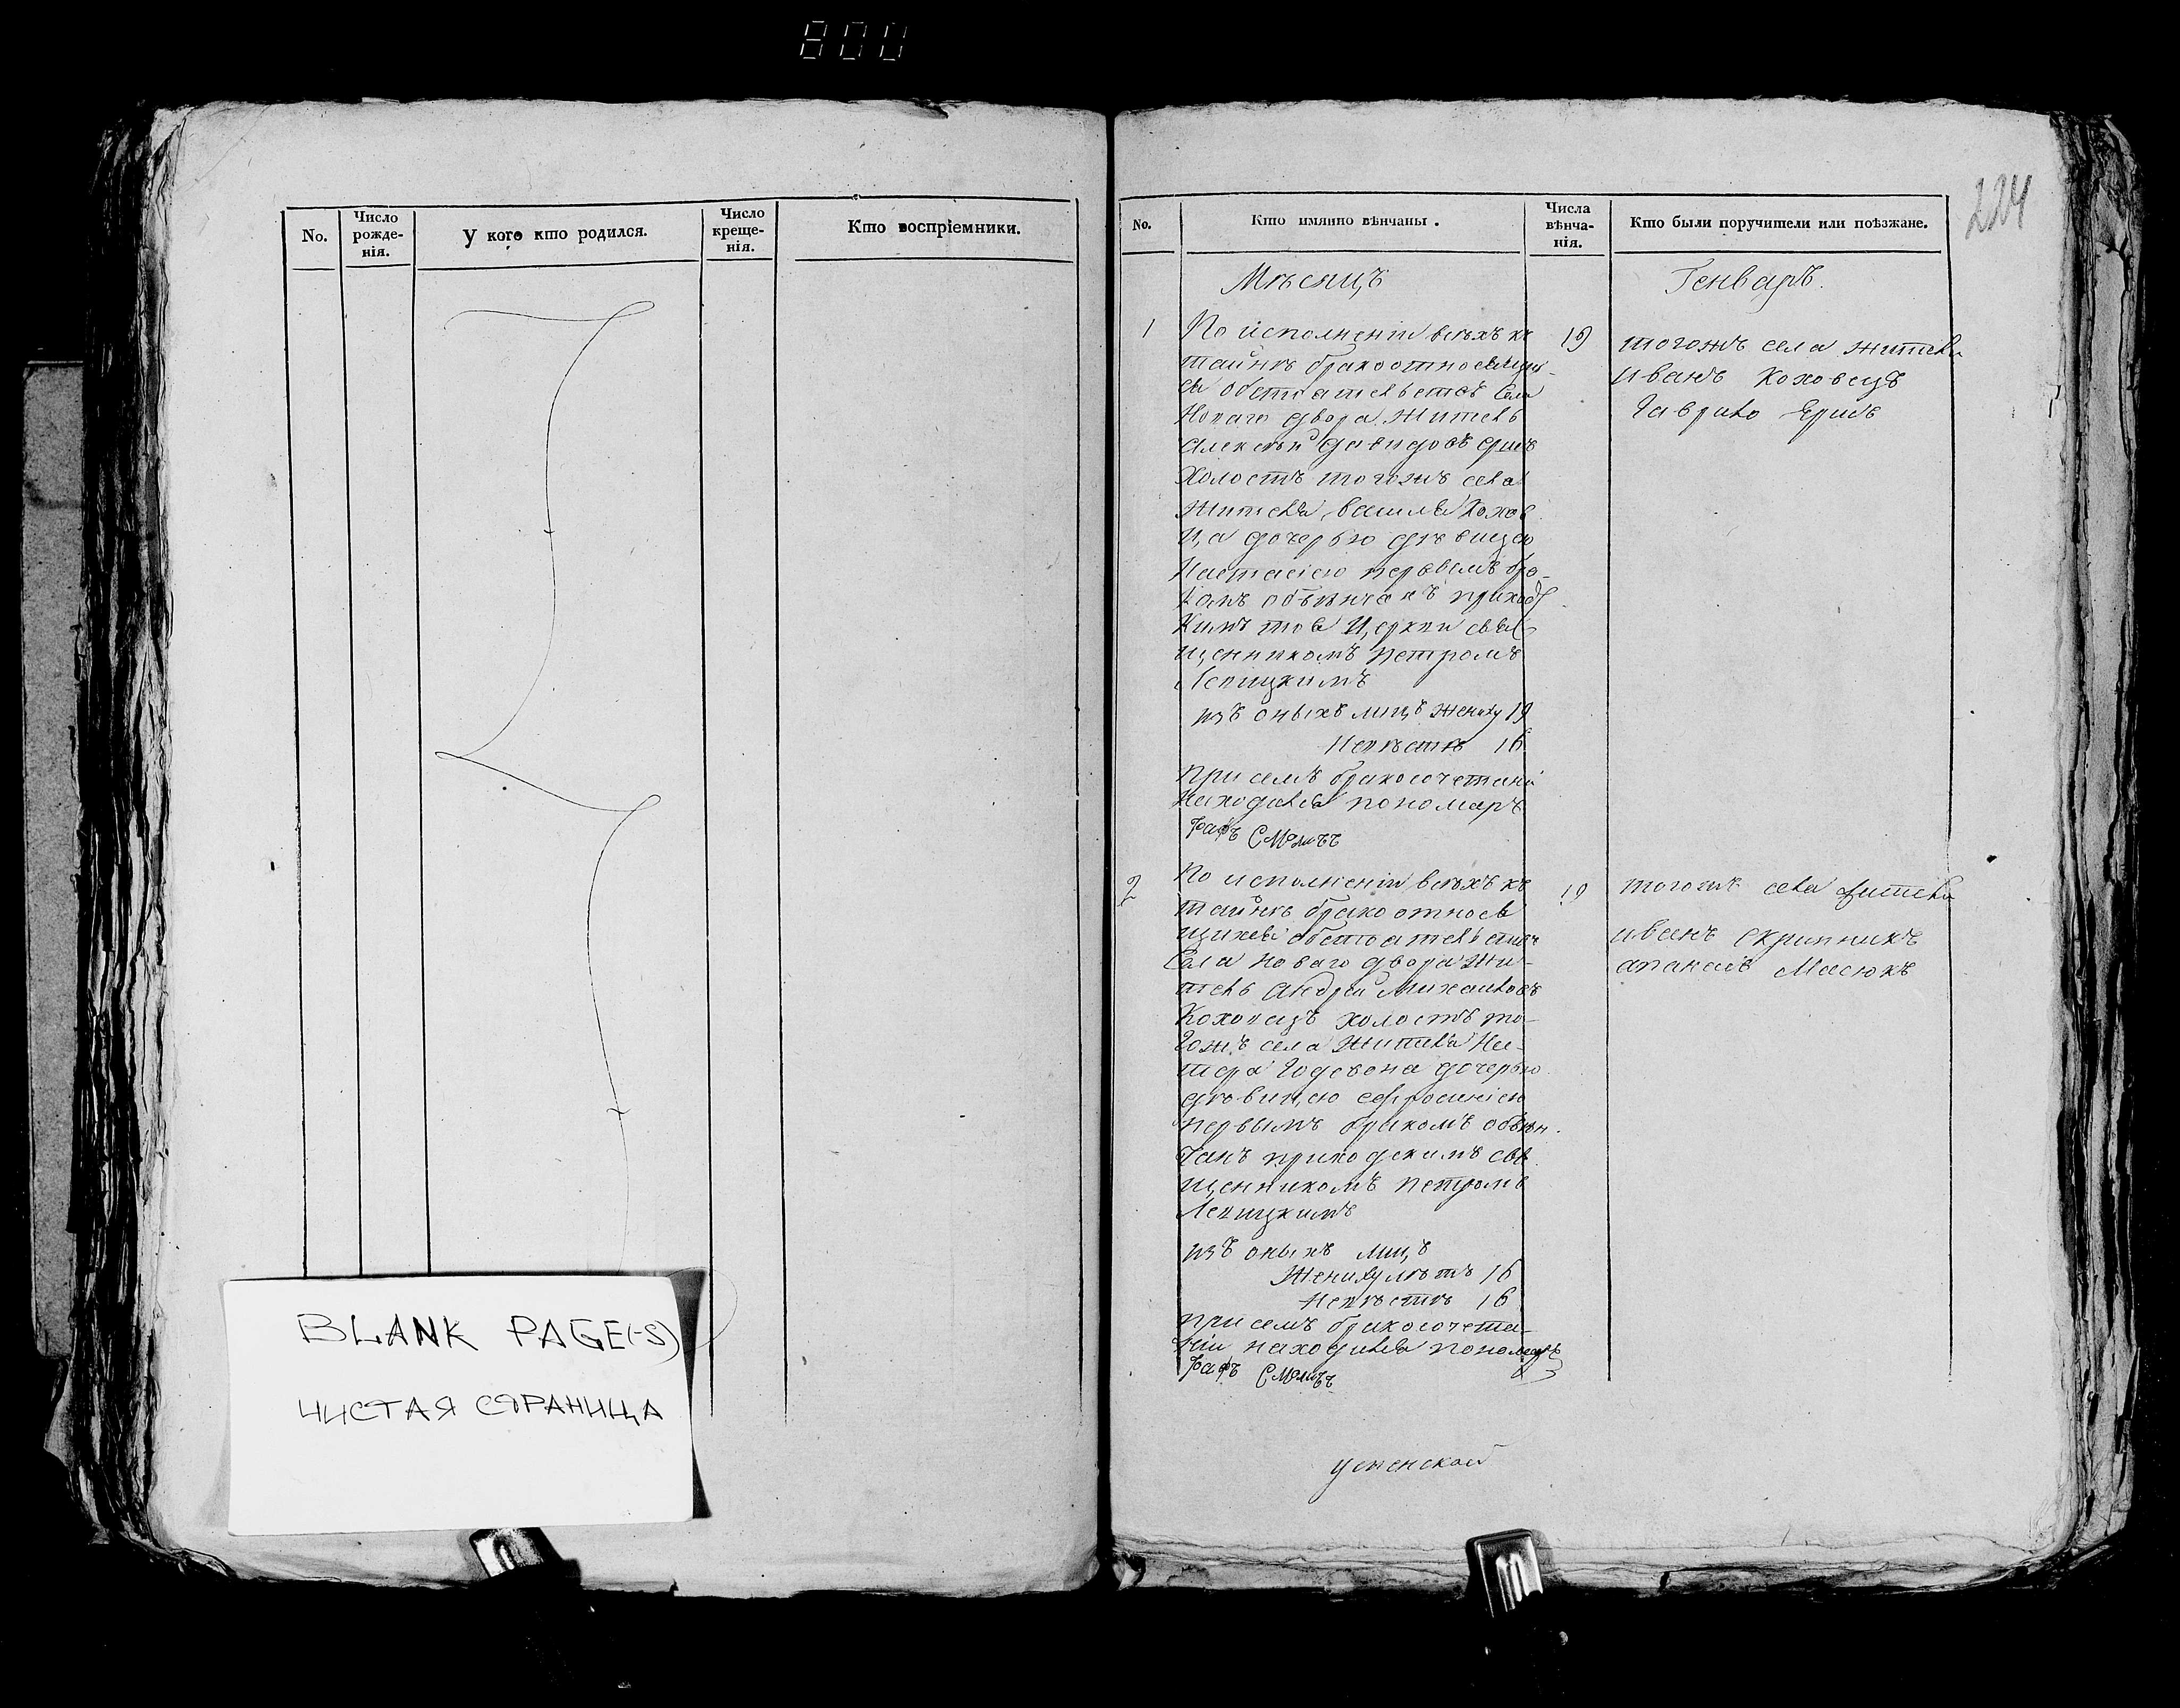 800
No.
Число рожде-нія.
У кого кто родился.
Число креще-нія.
Кто воспріемники.
BLANK PAGE(-S)
ЧИСТАЯ СТРАНИЦА
224
No.
Кто имянно вѣнчаны.
Числа вѣнча-нія.
Кто были поручители или поѣзжане.
Мѣсяцъ
Генварь.
1
19
По исполненіи всѣхъ къ
тайнѣ брака относящих-
ся обстоятельствъ села
Новаго двора житель
Алексѣй Давидовъ Ершъ
холостъ тогожъ села
жителя Василя Кохов
ца дочерью дѣвицею
Настасіею первымъ бра-
комъ обвѣнчанъ приходс
кимъ тоя Церкви свя
щенникомъ Петромъ
Левицкимъ
изъ оныхъ лицъ жениху 19
Невѣстѣ 16
при семъ бракосочетаніи
находился пономарь
тогожъ села жители
Иванъ Коховецъ
Гаврило Ершъ
2
19
По исполненіи всѣхъ къ
тайнѣ брака относя
щихся обстоятельствъ
Села Новаго двора жи-
тель Андрей Михайловъ
Коховецъ холостъ то-
гожъ села жителя Не-
стера Годована дочерью
дѣвицею Ефросиніею
первымъ бракомъ обвѣн
чанъ приходскимъ свя
щенникомъ Петромъ
Левицкимъ
изъ оныхъ лицъ
Жениху лѣтъ 16
Невѣстѣ 16
при семъ бракосочета-
ніи находился пономарь
тогожъ села жители
Иванъ Скрипникъ
Апанасъ Масюкъ
успенской